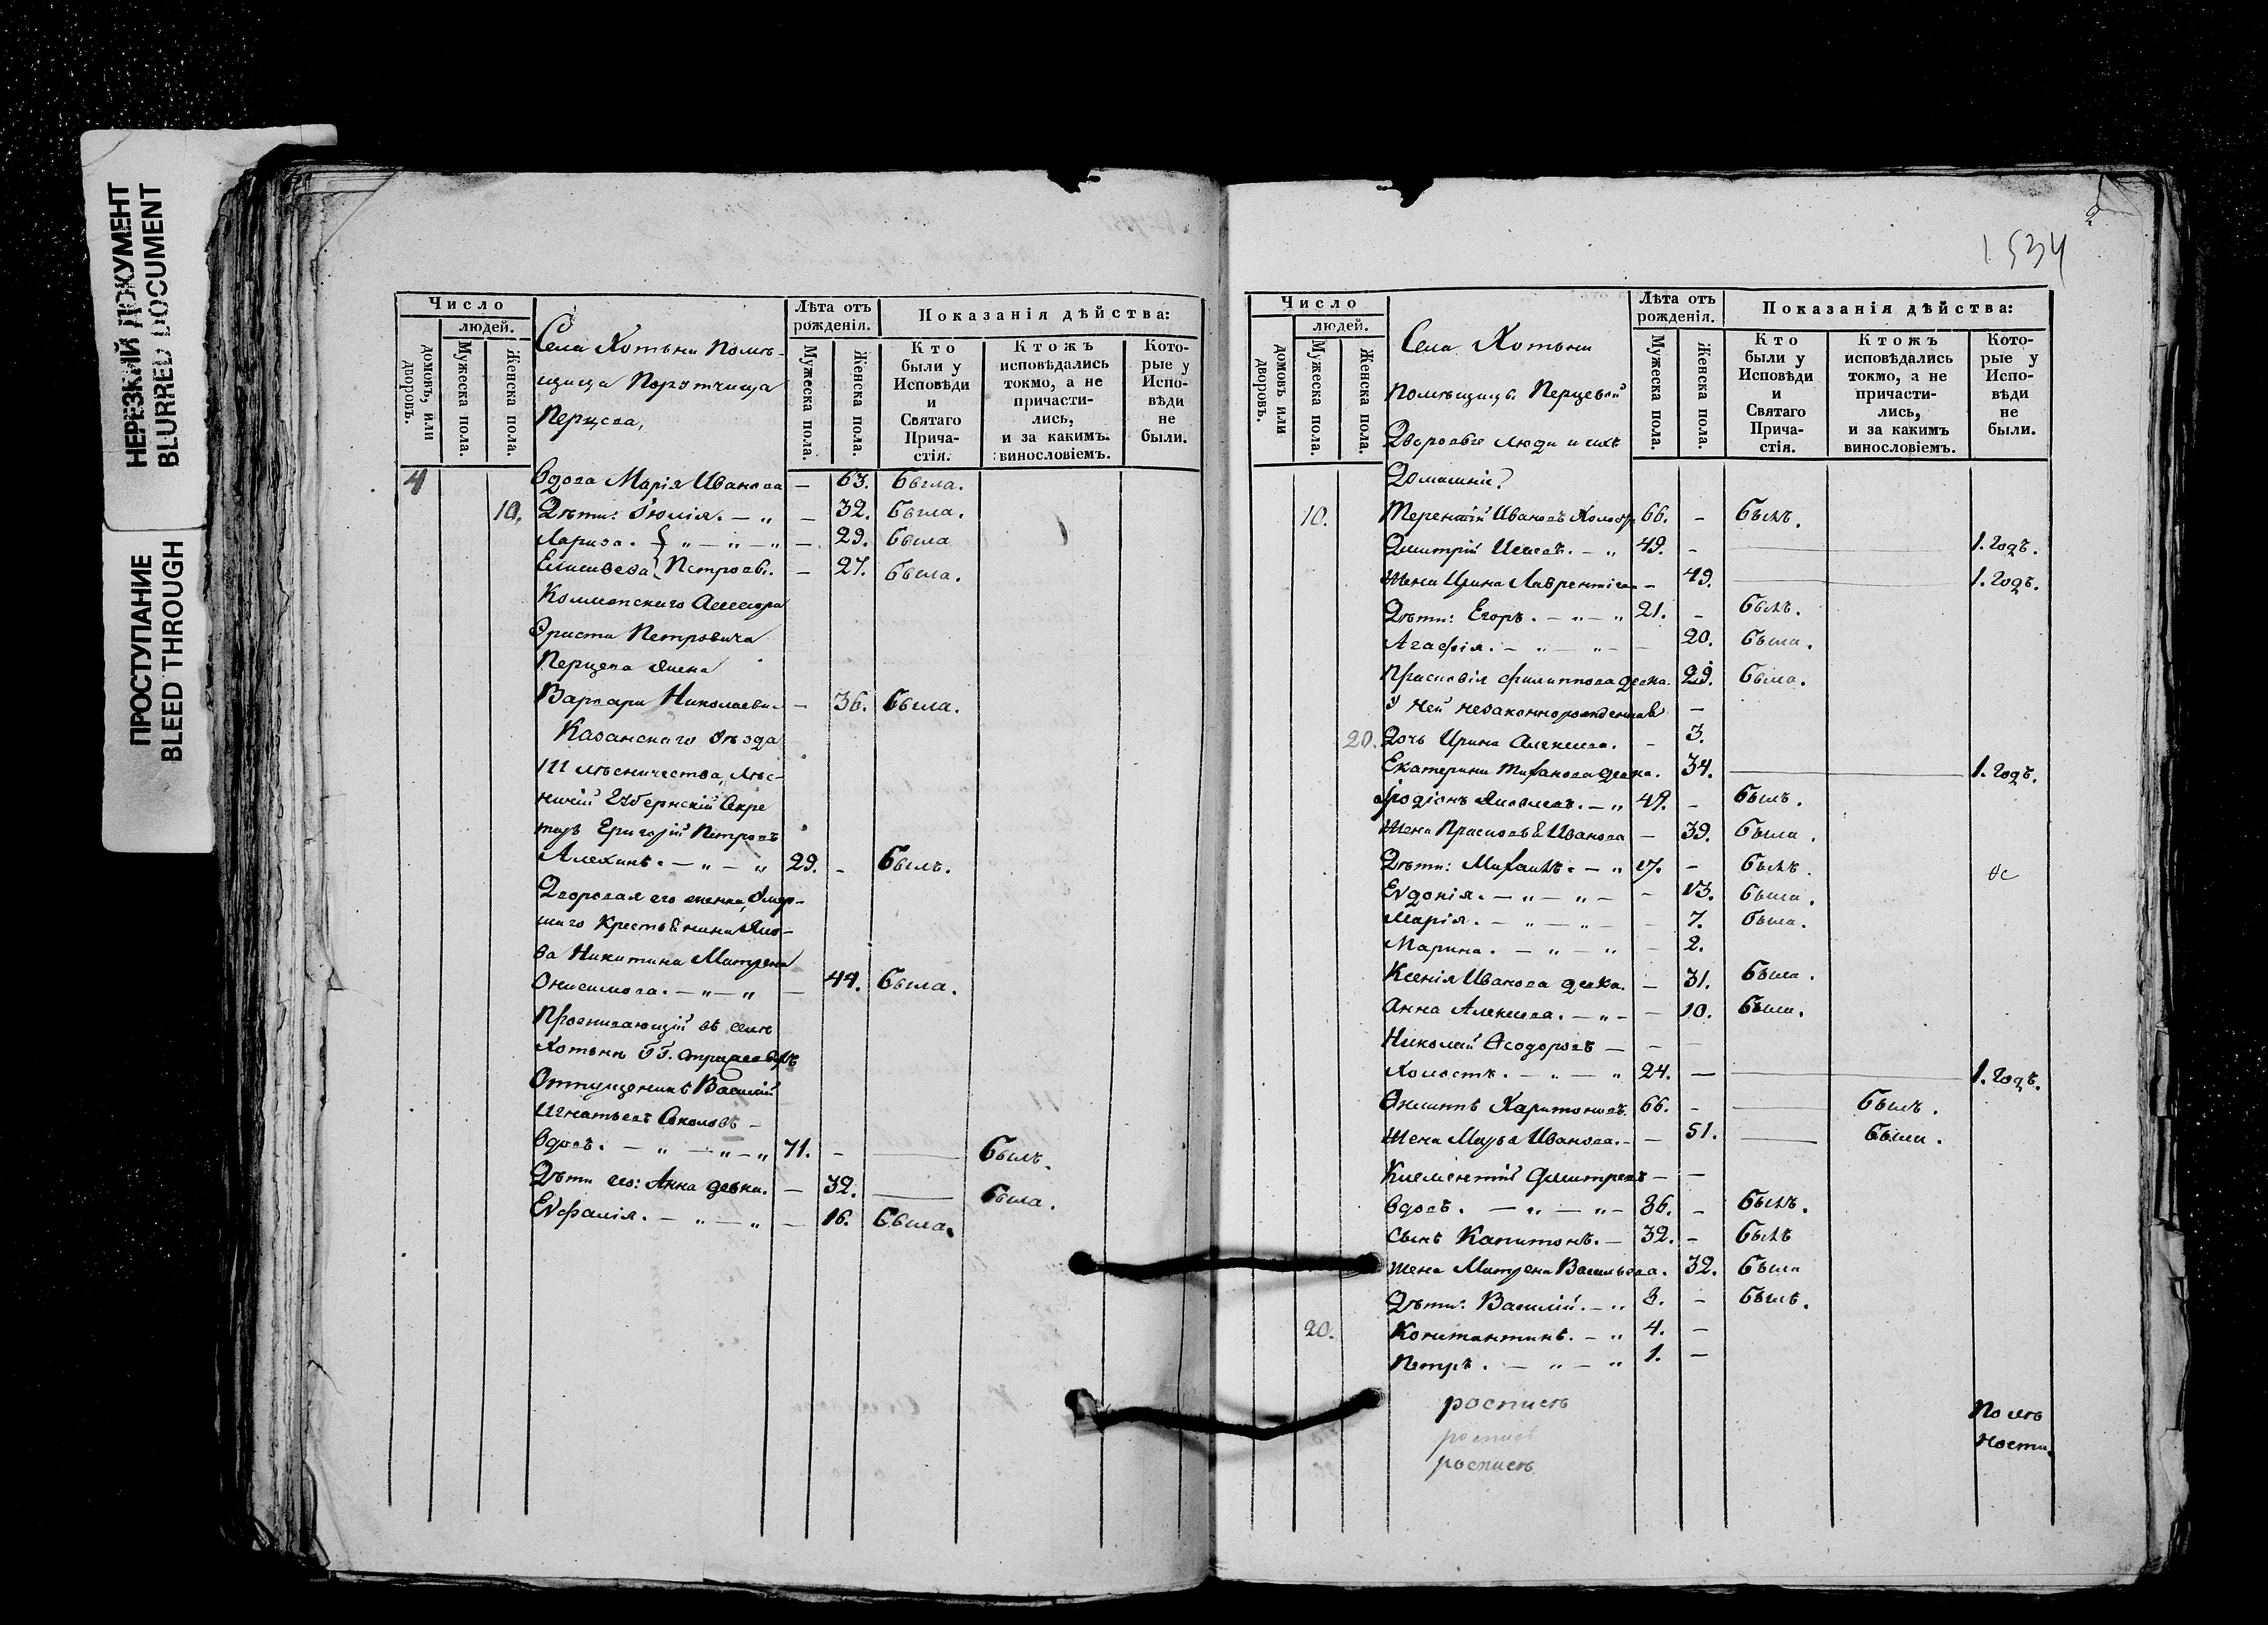 НЕРЕЗКИЙ ДОКУМЕНТ
BLURRED DOCUMENT
ПРОСТУПАНИЕ
BLEED THROUGH
Число
людей.
домовъ, или дворовъ.
Мужеска пола.
Женска пола.
Села Хотыни Помѣ-
щица Поротчица
Перцева,
Лѣта отъ рожденія.
Мужеска пола.
Женска пола.
Показанія дѣйства:
Кто были у Исповѣди и Святаго Прича-стія.
Ктожъ исповѣдались токмо, а не причасти-лись, и за какимъ винословіемъ.
Кото-рые у Испо-вѣди не были.
4 Вдова Марія Иванова — 63. была.
10. Дѣти: Юлія. — „ — 32. была.
Лариса. — „ — „ — 29. была
Елисавета Петровы. — 27. была.
Коллежскаго Ассесора
Петровича
Перцева жена
Варвара Николаевна — 36. была.
Казанскаго уѣзда
III лѣсничества, лѣс-
ничій Губернскій Секре
тарь Григорій Петровъ
Алехинъ. — „ — „ 29. - былъ.
Дворовая его женка, умер-
шаго Крестьянина
Никитина Матрена
Онисимова. — „ — „ — 44. была.
Проживающій въ селѣ
Хотыни ГГ.
Отпущеникъ Василій
Игнатьевъ Соколовъ —
вдовъ. — „ — „ — „ 71. - — былъ.
Дѣти его: Анна девка. — 32. — была.
Евфалія. — „ — „ — 16. была.
1534
2
Число
людей.
домовъ или дворовъ.
Мужеска пола.
Женска пола.
Села Хотыни
помѣщицы Перцевой
Дворовые люди и ихъ
Домашніе.
Лѣта отъ рожденія.
Мужеска пола.
Женска пола.
Показанія дѣйства:
Кто были у Исповѣди и Святаго Прича-стія.
Ктожъ исповѣдались токмо, а не причасти-лись, и за какимъ винословіемъ.
Кото-рые у Испо-вѣди не были.
10. Терентій Ивановъ 66. - былъ.
Дмитрій 49. - — 1. годъ.
Жена Ирина Лаврентіева - 49. — 1. годъ.
Дѣти: Егоръ. — „ — „ 21. - былъ.
Агафія. — „ — „ — 20. была.
Прасковія Филиппова девка. 29. была.
У ней незаконнорожденная —
20. Дочь Ирина Алексеева. - 3.
Екатерина девка. 34. — 1. годъ.
Родіонъ Яковлевъ. — „ 49. - былъ.
Жена Прасковья Иванова — 39. была.
Дѣти: Михаилъ. — „ 17. - былъ.
Евдокія. — „ — „ — 13. была.
Марія. — „ — „ — 7. была.
Марина. — „ — „ — 2.
Ксенія Иванова девка. — 31. была.
Анна Алексеева. — „ — 10. была.
Николай Феодоровъ —
Холостъ. — „ — „ 24. — — 1. годъ.
Харитоновъ. 66. - — былъ.
Жена Марья Иванова. — 51. — была.
Климентій Дмитревъ —
вдовъ. — „ — „ — 86. - былъ.
Сынъ Капитонъ. — 32. - былъ
жена Матрена Васильева. 32. была
Дѣти: Василій. — „ 8. - былъ.
20. Константинъ. — „ 4. —
Петръ. — „ — „ 1. —
росписъ
росписъ
росписъ